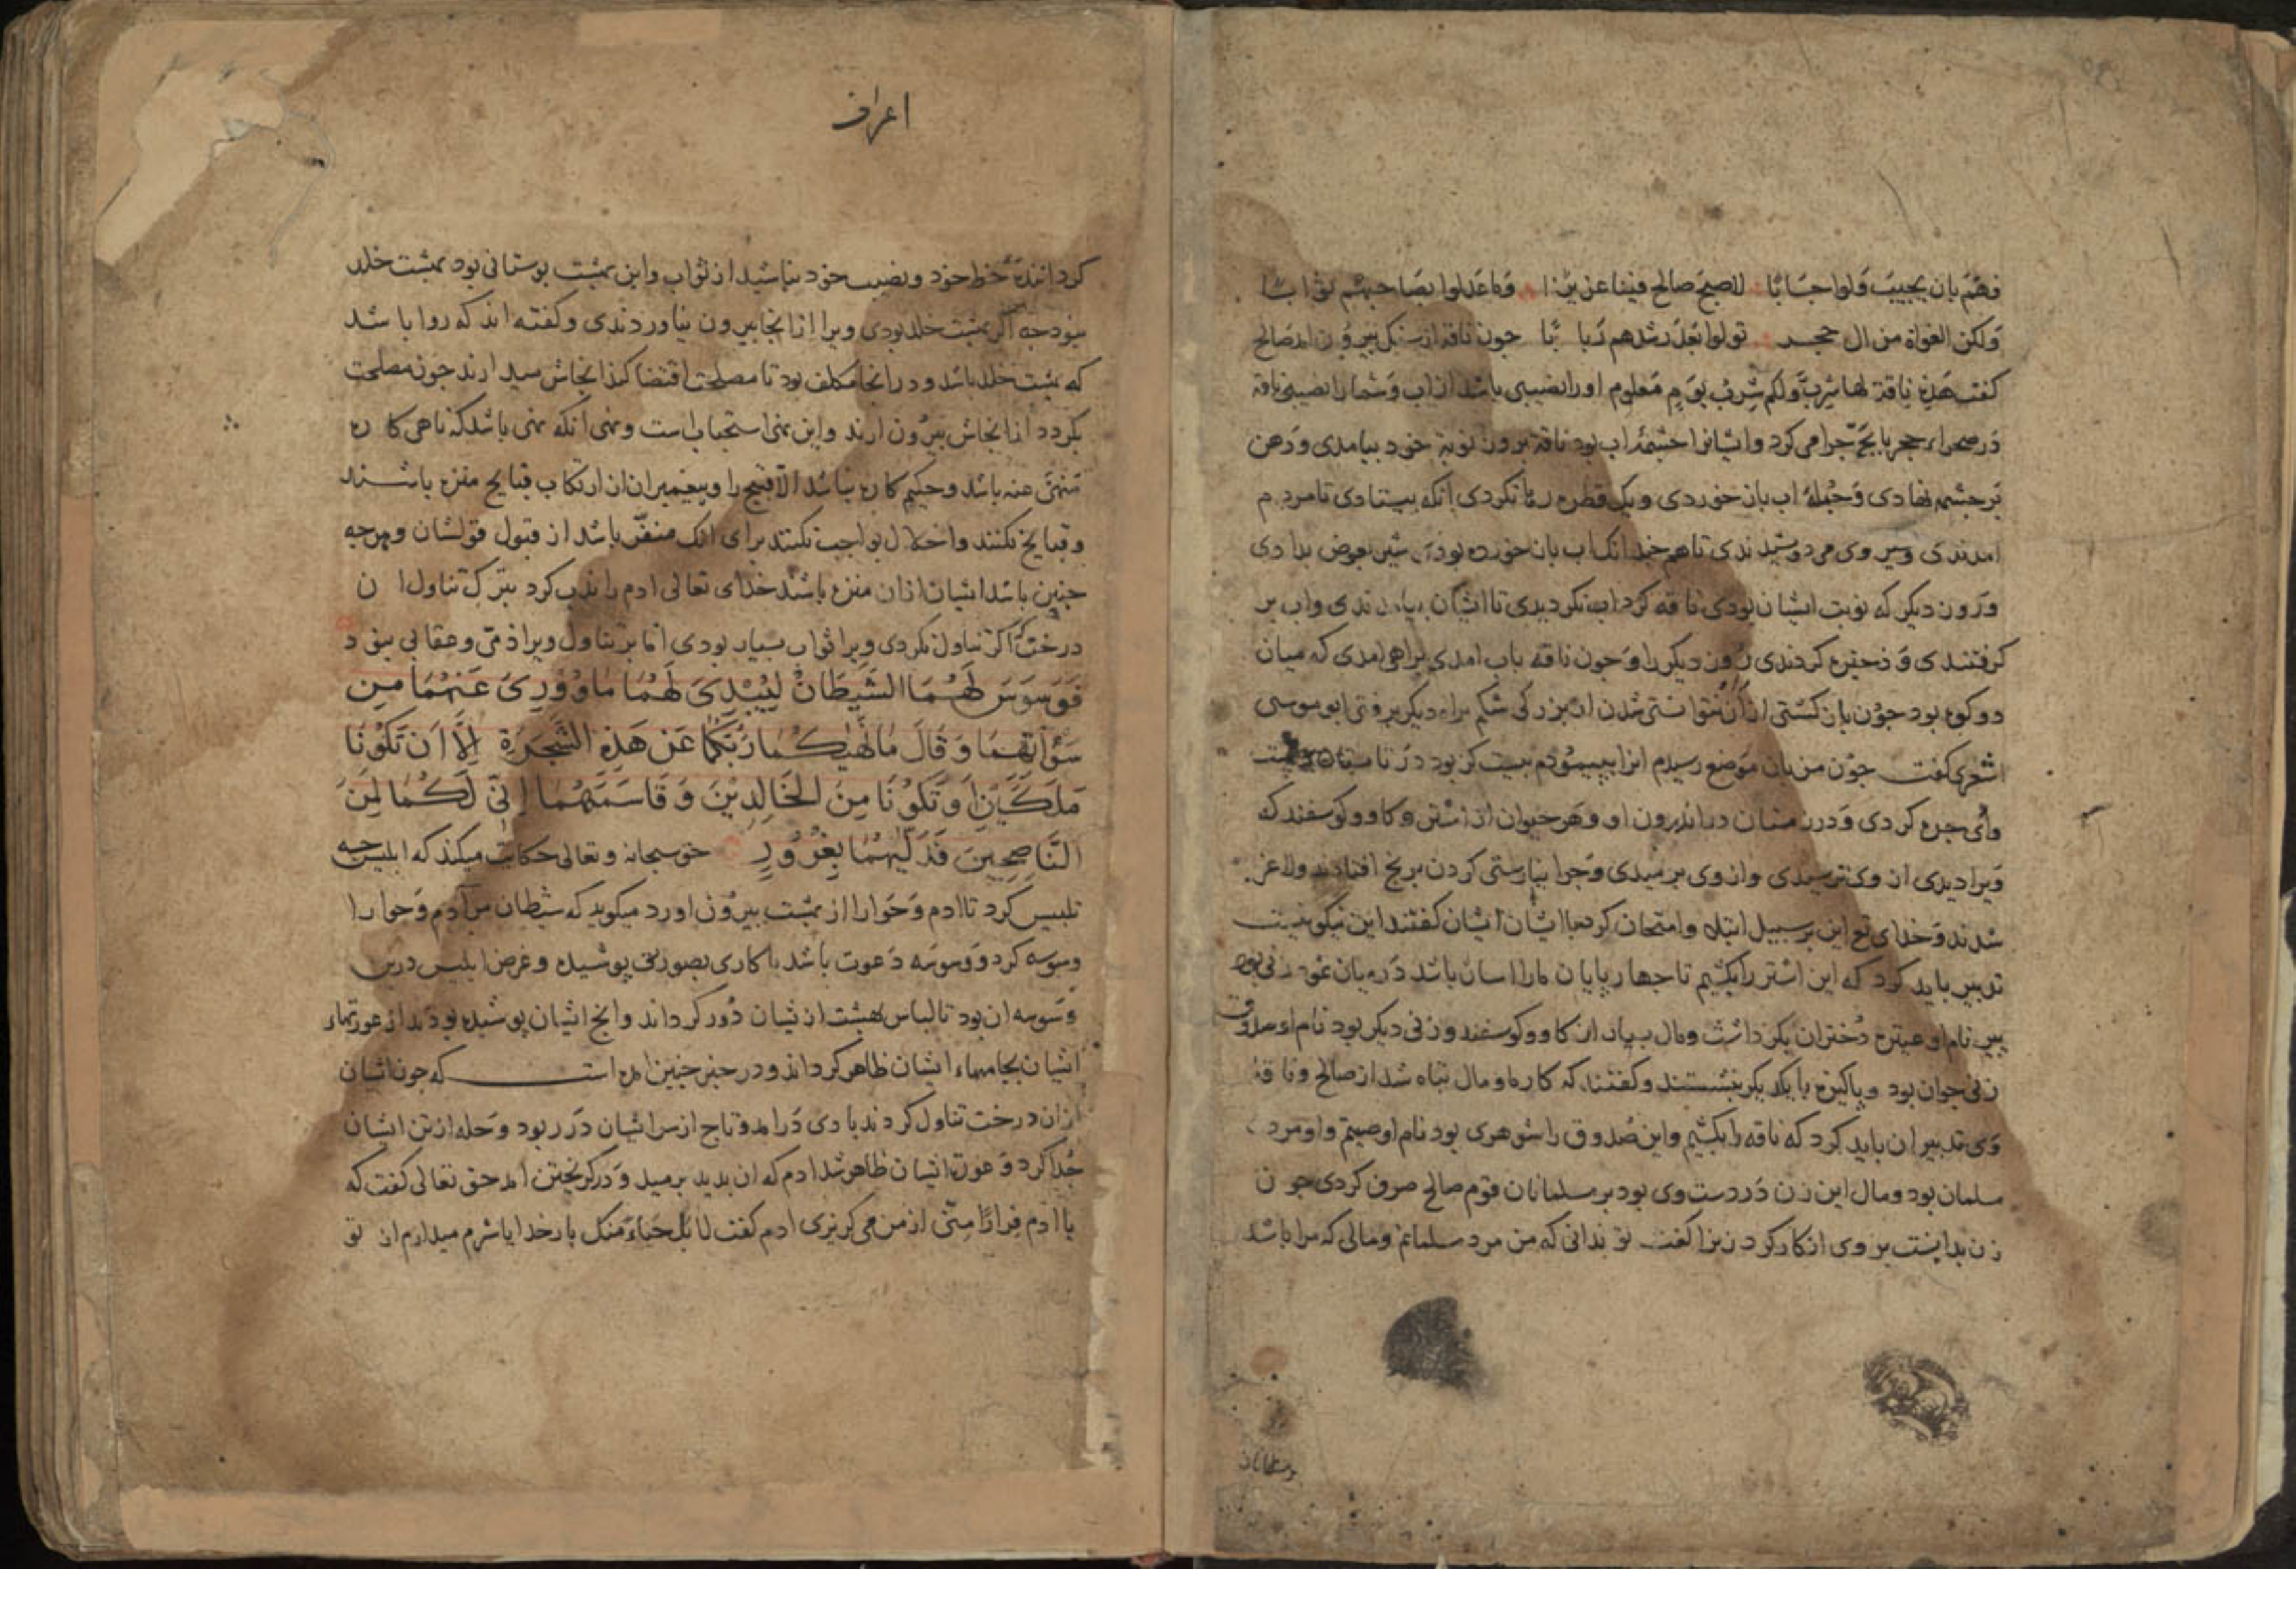 فهم بان یجیب ولوا جابا لاصبح صالح فینا عزیزا وما عدلوا بصاحبهم ذوابا
ولکن الغواة من ال حجر تولوا بعد رشدهم ذیابا جون ناقه از سنک بیرون امد صالح
کفت هذه ناقة لها شرب ولکم شرب یوم معلوم اورا نصیبی باشد از اب وشما را نصیبی ناقه
در صحراء حجر جرا می کرد وایشانرا جشمهٔ اب بود ناقه بروز نوبة خود بیامدی ودهن
بر جشمه نهادی وجملهٔ اب بان خوردی ویک قطره رها نکردی انکه بیستادی تا مردم
امدندی وشیر وی می دوشیدندی تا هم جندانک اب بان خورده بودی شیر بعوض بدادی
وروز دیکر که نوبت ایشان بودی ناقه کرد اب نکردیدی تا ایشان بیامدندی واب بر
کرفتندی وذخیره کردندی روز دیکر را وجون ناقه باب امدی براهی امدی که میان
دو کوه بود جون باز کشتی از ان نتوانستی شدن از بزرکی شکم براه دیکر برفتی ابو موسی
اشعری کفت جون من بان موضع رسیدم انرا بپیمودم بیست کز بود در تابستان
وادی جره کردی ودر زمستان در اندرون او وهر حیوان از اشتر وکاو وکوسفند که
ویرا دیدی از وی بترسیدی واز وی برمیدی وجرا نیارستی کردن برنج افتادند ولاغر
شدند وخدای تع این بر سبیل ابتلا وامتحان کرد با ایشان ایشان کفتند این نیکو نیست
تدبیر باید کرد که این اشتر را بکشیم تا جهار پایان مارا اسان باشد در میان ثمود زنی بود
پیر نام او عنیزه دختران یکر داشت ومال بسیار از کاو وکوسفند وزنی دیکر بود نام او صدوق
زنی جوان بود وپاکیزه بایکدیکر بنشستند وکفتند که کار ما ومال تباه شد از صالح وناقهٔ
وی تدبیر ان باید کرد که ناقه را بکشیم واین صدوق را شوهری بود نام او صیتم واو مرد
مسلمان بود ومال این زن در دست وی بود بر مسلمانان قوم صالح صرف کردی جون
زن بدانست بر وی انکار کرد زنرا کفت تو بدانی که من مرد مسلمانم ومالی که مرا باشد
بر مسلمانان
اعراف
کردانندهٔ حظ خود ونصیب خود بباشید از ثواب واین بهشت بوستانی بود بهشت خلد
نبود جه اکر بهشت خلد بودی ویرا از انجا بیرون نیاوردندی وکفته اند که روا باشد
که بهشت خلد باشد ودر انجا مکلف بود تا مصلحت اقتضا کند انجاش میدارند جون مصلحت
بکردد از انجاش بیرون ارند واین نهی استحباب است ونهی انکه نهی باشد که ناهی کاره
منهی عنه باشد وحکیم کاره نباشد الا قبیح را وپیغمبران از ارتکاب قبایح منزه باشند
وقبایح نکنند واخلال بواجب نکنند برای انک منفر باشد از قبول قولشان وهرجه
جنین باشد ایشان از ان منزه باشند خدای تعالی ادم را ندب کرد بترک تناول ان
درخت که اکر تناول نکردی ویرا ثواب بسیار بودی اما بر تناول ویرا ذمی وعقابی نبود
فَوَسْوَسَ لَهُمَا الشَّيْطَانُ لِيُبْدِيَ لَهُمَا مَا وُورِيَ عَنْهُمَا مِن
سَوْآتِهِمَا وَقَالَ مَا نَهٰيكُمَا رَبُّكُمَا عَنْ هَذِهِ الشَّجَرَةِ إِلَّا أَن تَكُونَا
مَلَكَيْنِ أَوْ تَكُونَا مِنَ الْخَالِدِينَ وَقَاسَمَهُمَا إِنِّي لَكُمَا لَمِنَ
النَّاصِحِينَ فَدَلّٰيهُمَا بِغُرُورٍ حق سبحانه وتعالی حکایت میکند که ابلیس جه
تلبیس کرد تا ادم وحوا را از بهشت بیرون اورد میکوید که شیطان مر ادم وحوا را
وسوسه کرد ووسوسه دعوت باشد با کاری بصورتی پوشیده وغرض ابلیس درین
وسوسه ان بود تا لباس بهشت از یشان دور کرداند وانج ایشان پوشیده بودند از عورتهاء
ایشان بجامهاء ایشان ظاهر کرداند ودر خبر جنین امده است که جون ایشان
ازان درخت تناول کردند بادی درامد وتاج از سر ایشان در ربود وحله از تن ایشان
جدا کرد وعورت ایشان ظاهر شد ادم که ان بدید برمید ودر کریختن امد حق تعالی کفت که
یا ادم فِرارًا مِنّی از من می کریزی ادم کفت لا بل حیاءً منک بار خدایا شرم میدارم از تو